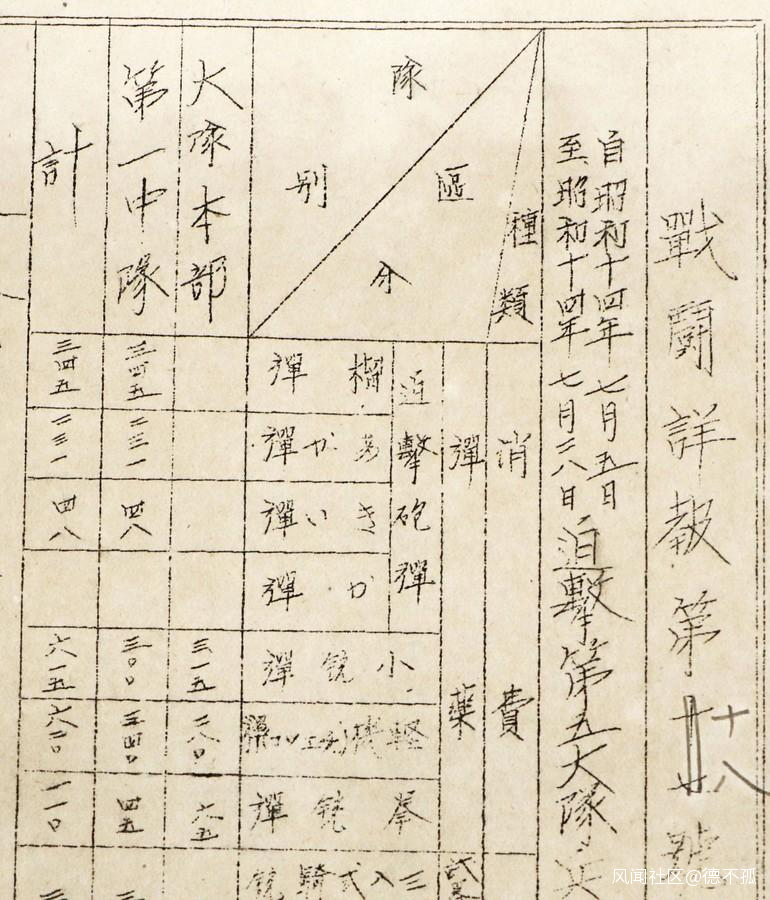 戰鬪詳報第十八號
自昭和十四年七月五日
至昭和十四年七月二八日
迫擊第五大隊
種類
區分
隊別
消費
彈藥
迫擊砲彈
榴彈
あか彈
きい彈
か彈
小銃彈
輕機
拳銃彈
三八式騎銃
大隊本部
三一五
二八〇
六五
第一中隊
三四五
二三一
四八
三〇〇
三四〇
四五
計
三四五
二三一
四八
六一五
六二〇
一一〇
风闻社区@德不孤